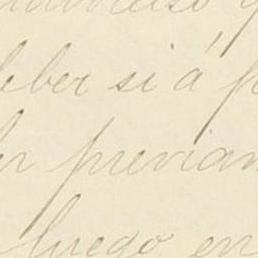 eber si á p
r previam
luego en